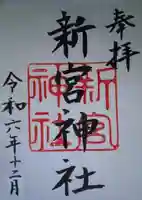 奉拝
新宮神社
新宮
神社
令和六年十二月